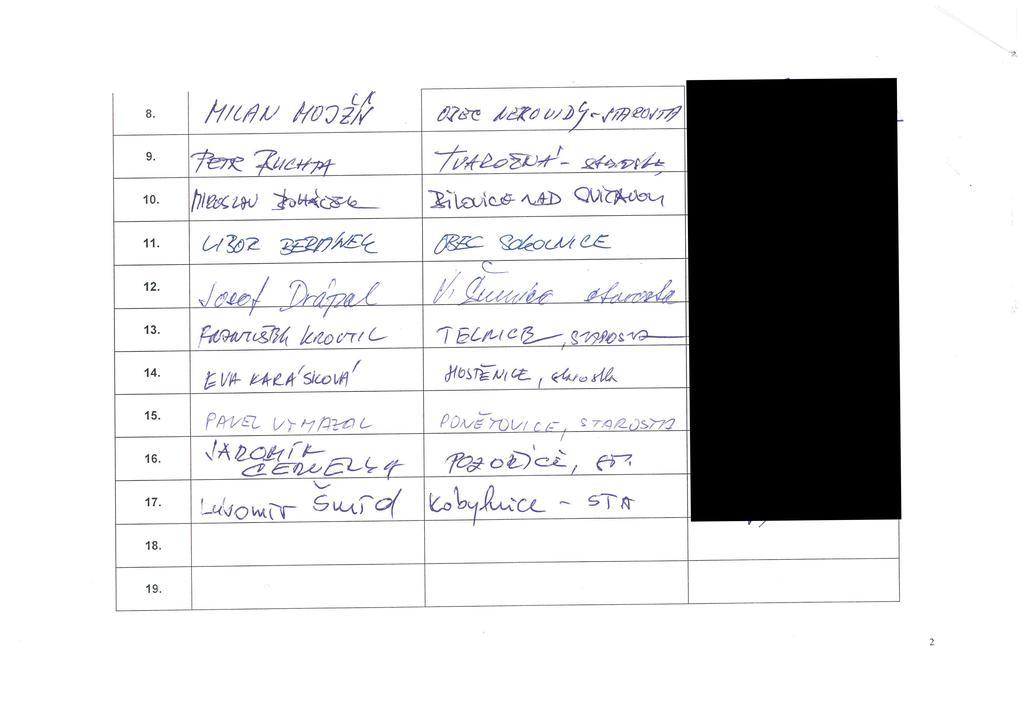 8. MILAN MOJŽÍŠ OBEC NEROVIDY - STAROSTA
9. PETR BUCHTA TVAROŽNÁ - starosta
10. MIROSLAV BOHÁČEK BÍLOVICE NAD SVITAVOU
11. LIBOR BERÁNEK OBEC SOKOLNICE
12. Josef Drápal V. Šumice starosta
13. FRANTIŠEK KROUTIL TELNICE, STAROSTA
14. EVA KARÁSKOVÁ HOSTĚNICE, starostka
15. PAVEL VYMAZAL PONĚTOVICE, STAROSTA
16. JAROMÍR POZOŘICE, ST.
17. Lubomír Šmíd Kobylnice - STA
18.
19.
2